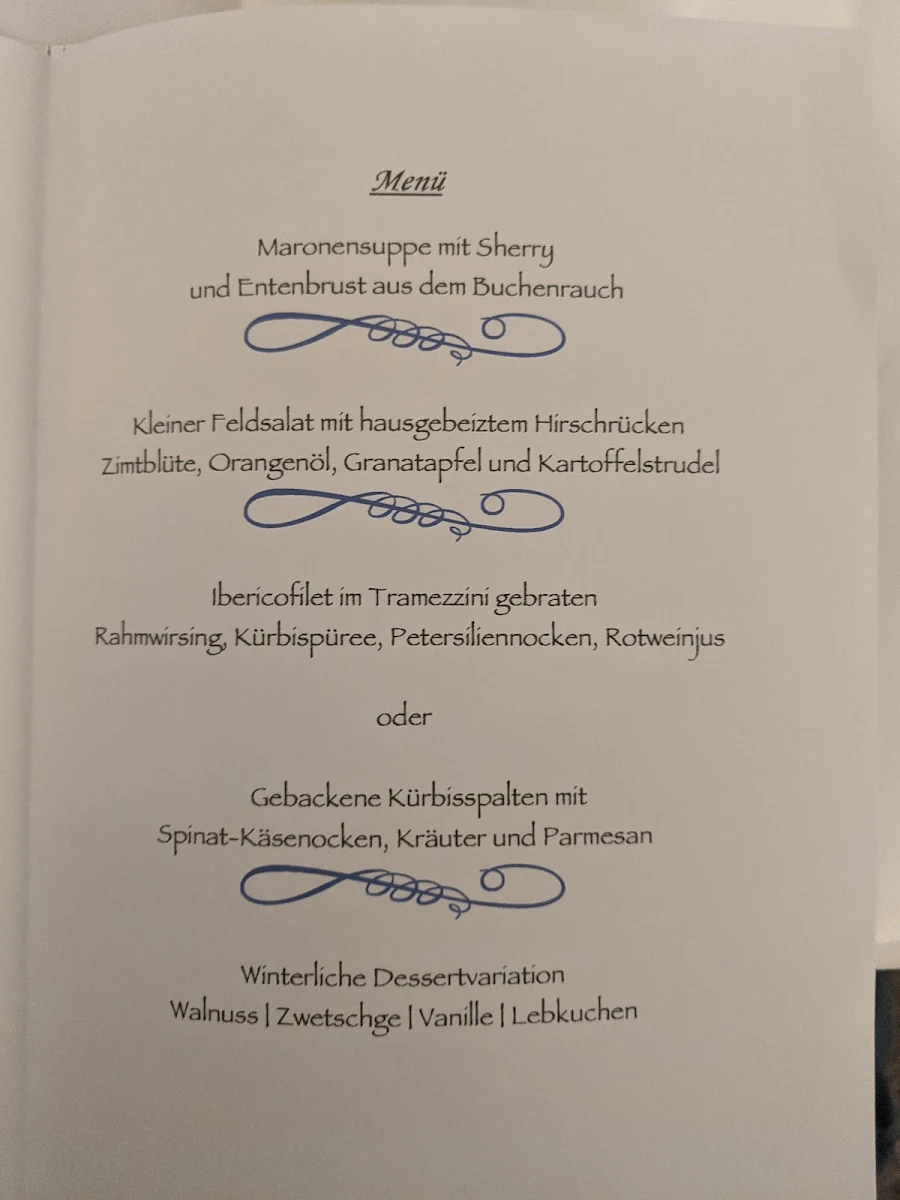 Menü
Maronensuppe mit Sherry
und Entenbrust aus dem Buchenrauch
Kleiner Feldsalat mit hausgebeiztem Hirschrücken
Zimtblüte, Orangenöl, Granatapfel und Kartoffelstrudel
Ibericofilet im Tramezzini gebraten
Rahmwirsing, Kürbispüree, Petersiliennocken, Rotweinjus
oder
Gebackene Kürbisspalten mit
Spinat-Käsenocken, Kräuter und Parmesan
Winterliche Dessertvariation
Walnuss | Zwetschge | Vanille | Lebkuchen